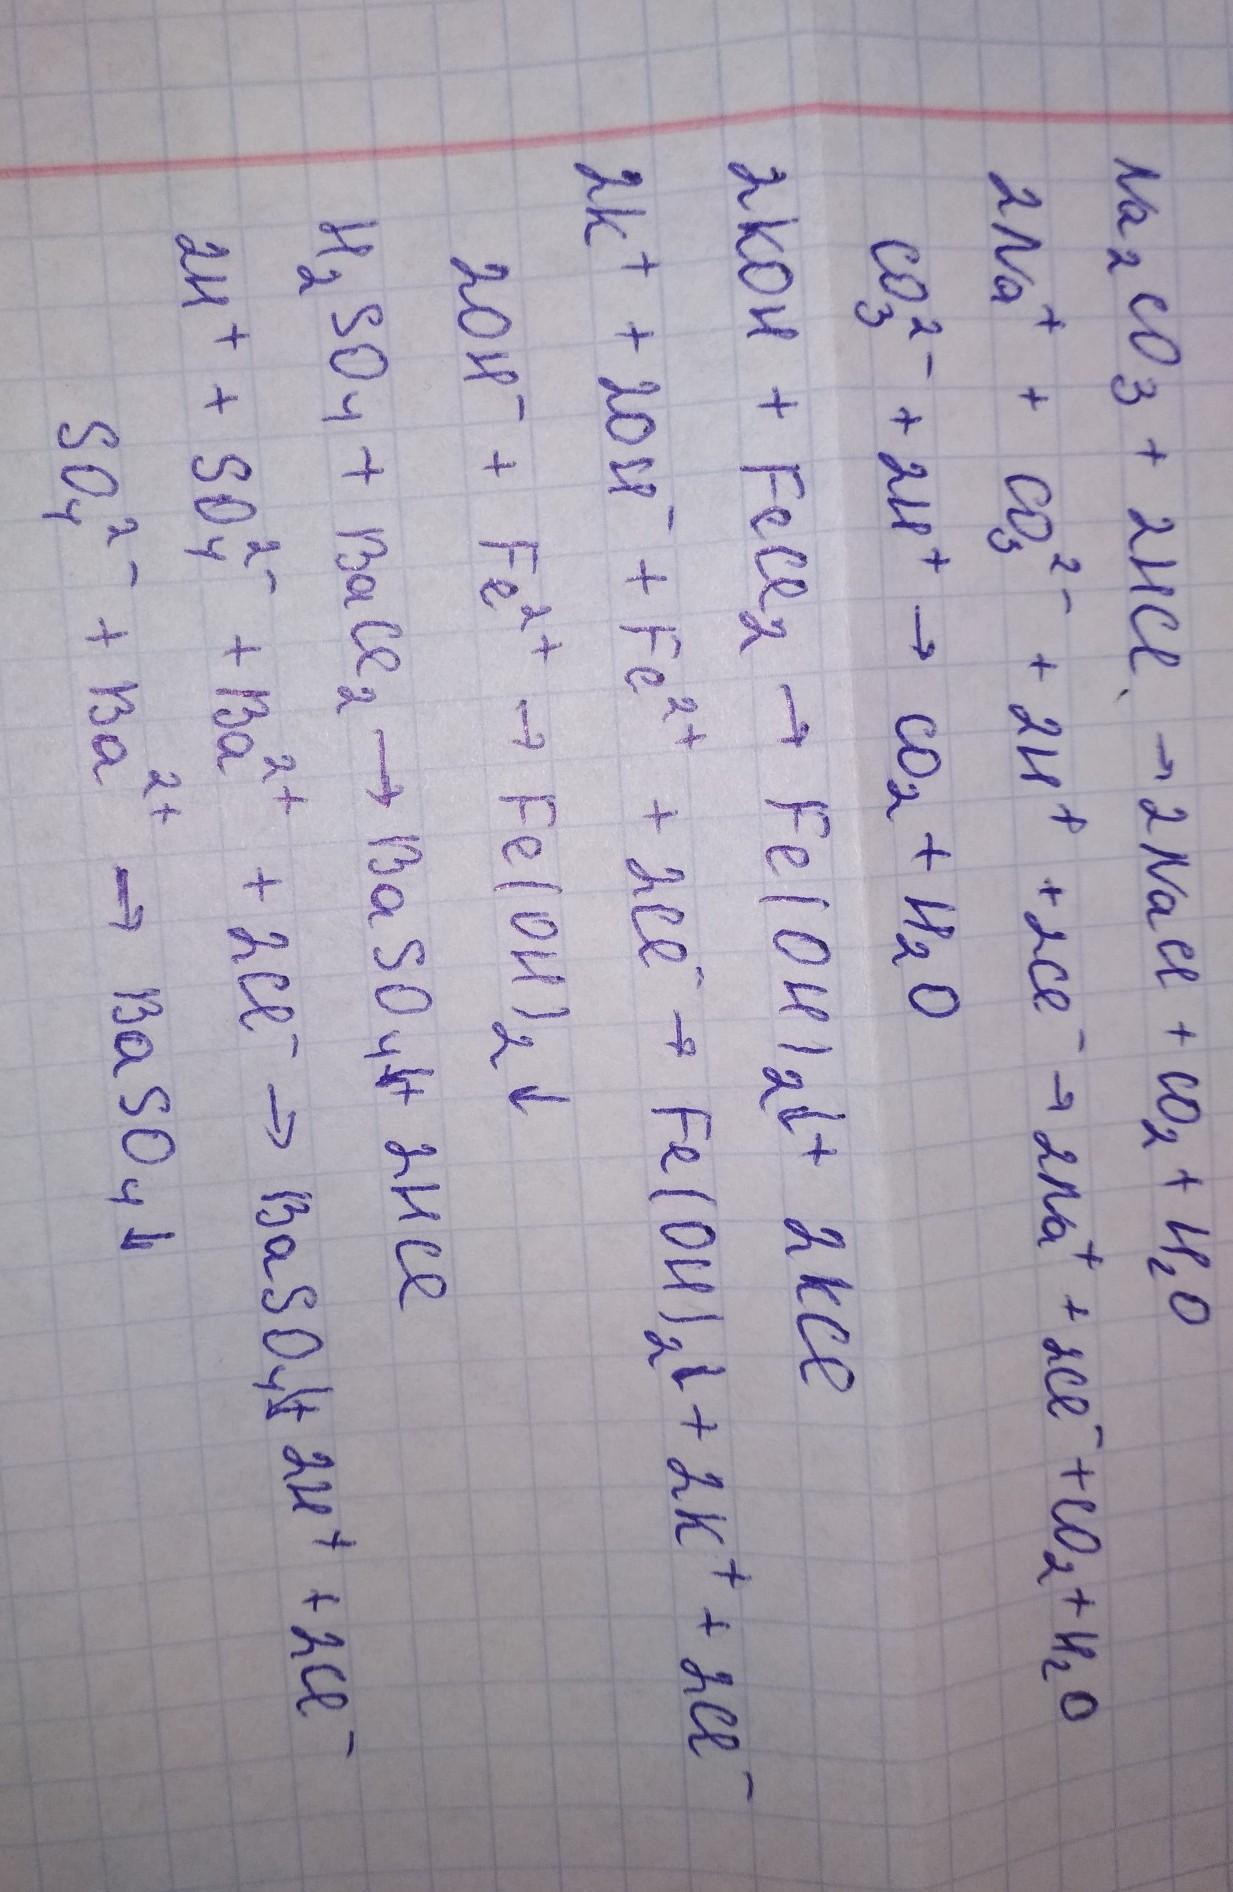 Na₂CO₃ + 2HCl → 2NaCl + CO₂ + H₂O
2Na⁺ + CO₃²⁻ + 2H⁺ + 2Cl⁻ → 2Na⁺ + 2Cl⁻ + CO₂ + H₂O
CO₃²⁻ + 2H⁺ → CO₂ + H₂O
2KOH + FeCl₂ → Fe(OH)₂↓ + 2KCl
2K⁺ + 2OH⁻ + Fe²⁺ + 2Cl⁻ → Fe(OH)₂↓ + 2K⁺ + 2Cl⁻
2OH⁻ + Fe²⁺ → Fe(OH)₂↓
H₂SO₄ + BaCl₂ → BaSO₄↓ + 2HCl
2H⁺ + SO₄²⁻ + Ba²⁺ + 2Cl⁻ → BaSO₄↓ + 2H⁺ + 2Cl⁻
SO₄²⁻ + Ba²⁺ → BaSO₄↓